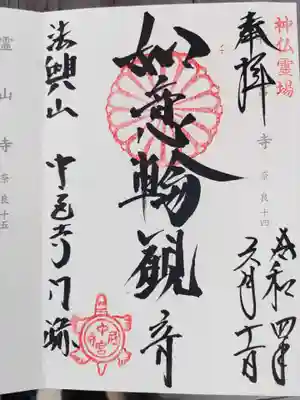 神仏霊場
奉拝
寺 奈良十四
令和四年
六月十一日
如意輪観音
法興山 中宮寺門跡
中宮寺
霊山寺 奈良十五